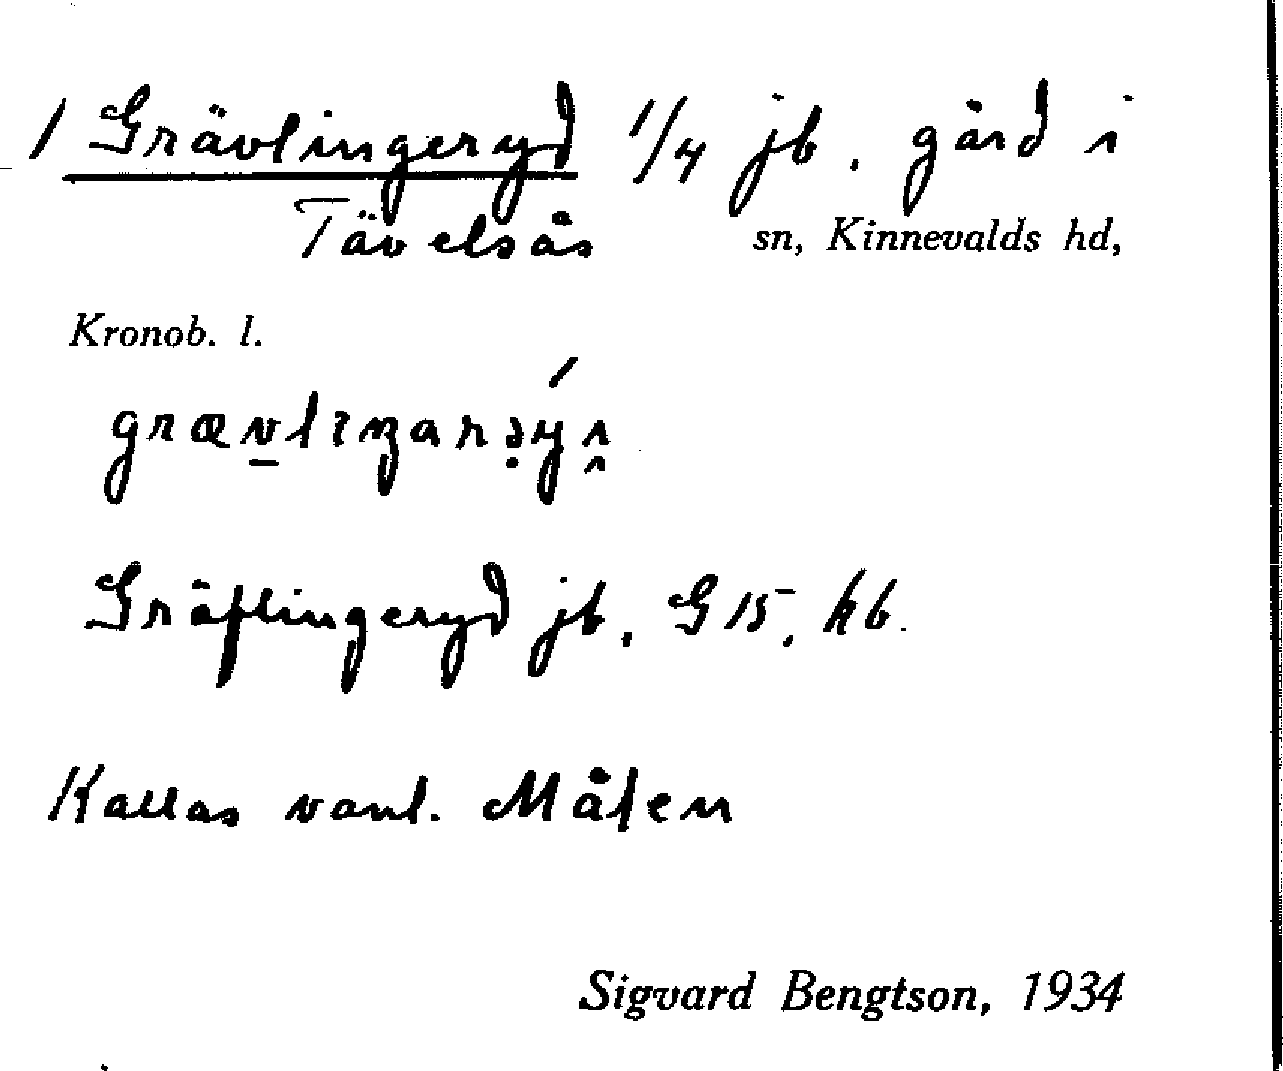 1 Grävlingeryd 1/4 jb. gård i
Tävelsås sn, Kinnevalds hd,
Kronob. l.
Gräflingeryd jb, G 15, kb.
Kallas vanl. Målen
Sigvard Bengtson, 1934